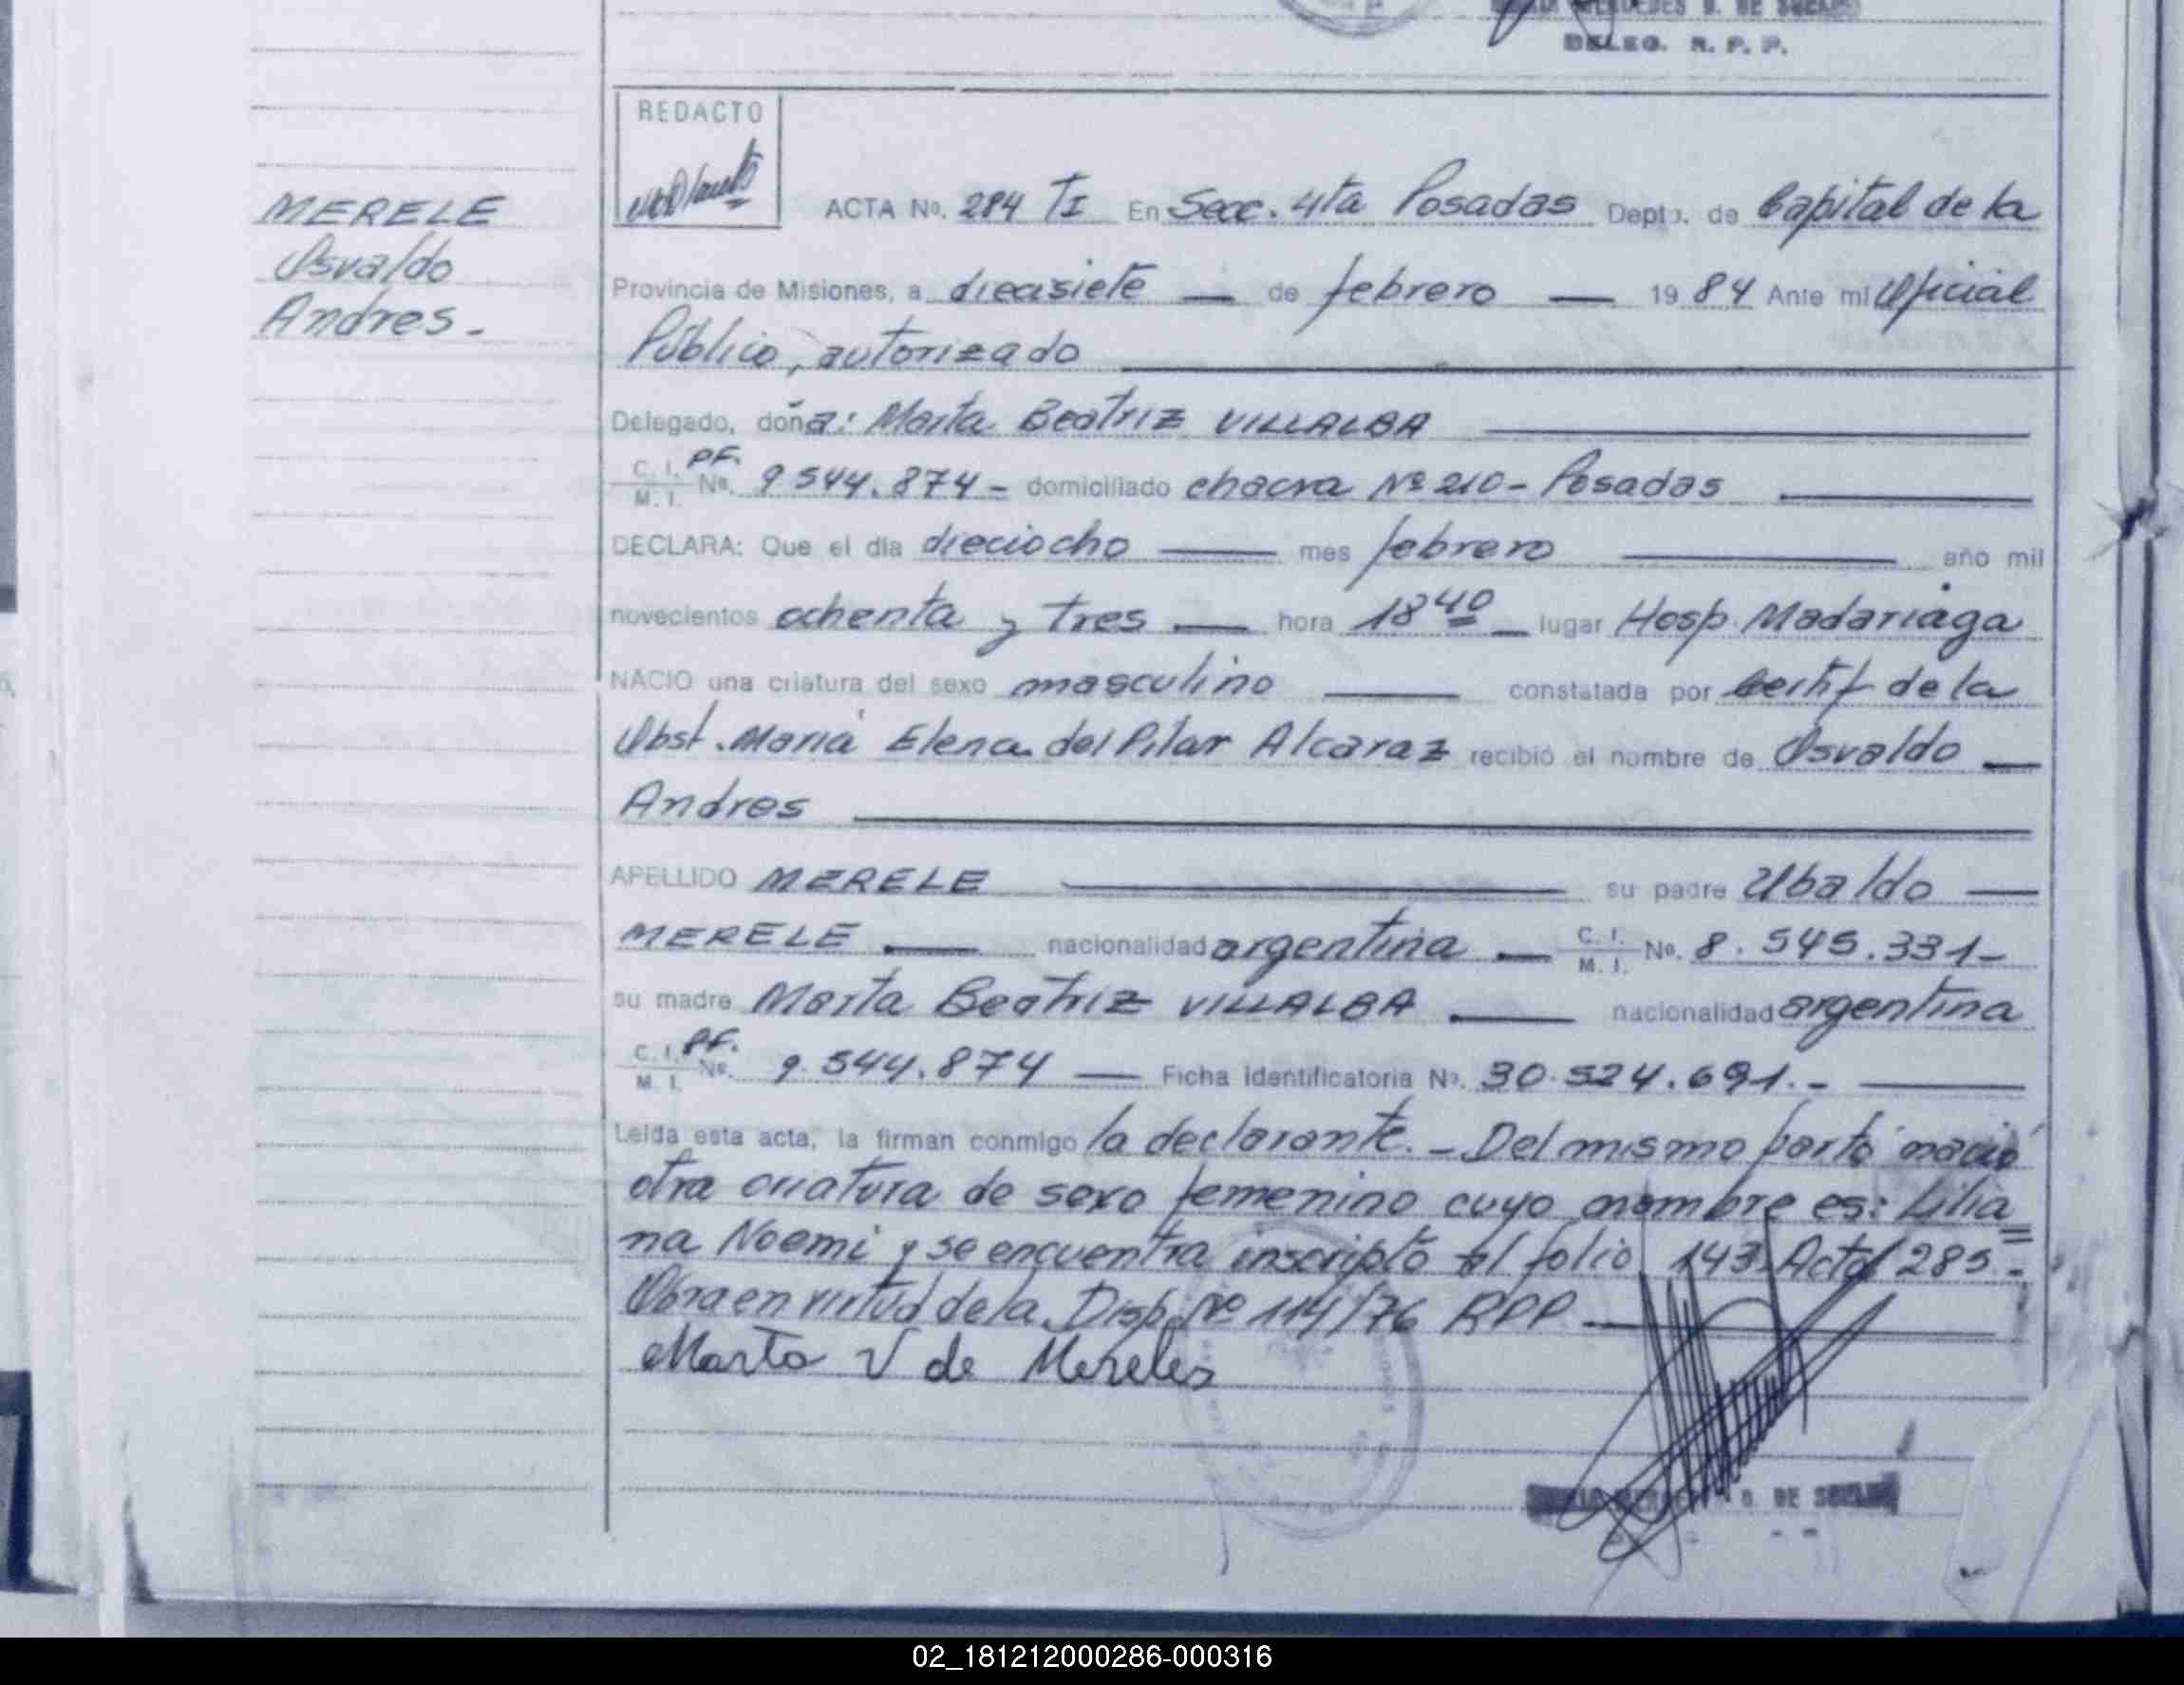 DE SUELDO
DELEG. R. P. P.
REDACTO
MERELE
Osvaldo
Andres.-
ACTA No. 284 TI En Secc. 4ta Posadas Depto. de Capital de la
Provincia de Misiones, a diecisiete — de febrero — 19 84 Ante mi Oficial
Público, autorizado
Delegado, doña: Marta Beatriz VILLALBA
C. I. M. I. PF. No. 9.544.874 - domiciliado chacra Nº 210 - Posadas
DECLARA: Que el día dieciocho — mes febrero — año mil
novecientos ochenta y tres — hora 18 40 — lugar Hosp. Madariaga
NACIO una criatura del sexo masculino — constatada por Certif de la
Obst. María Elena del Pilar Alcaraz recibió el nombre de Osvaldo —
Andres
APELLIDO MERELE — su padre Ubaldo —
MERELE — nacionalidad argentina — C. I. M. I. No. 8.545.331-
su madre Marta Beatriz VILLALBA — nacionalidad argentina
C. I. M. I. PF. No. 9.544.874 — Ficha identificatoria No. 30.524.691.-
Leída esta acta, la firman conmigo la declarante. - Del mismo parto nació
otra criatura de sexo femenino cuyo nombre es: Lilia
na Noemi y se encuentra inscripto al folio 143 Acta 285 -
Obra en virtud de la Disp. Nº 114/76 RPP
Marta V de Mereles
DE SUELDO
02_181212000286-000316